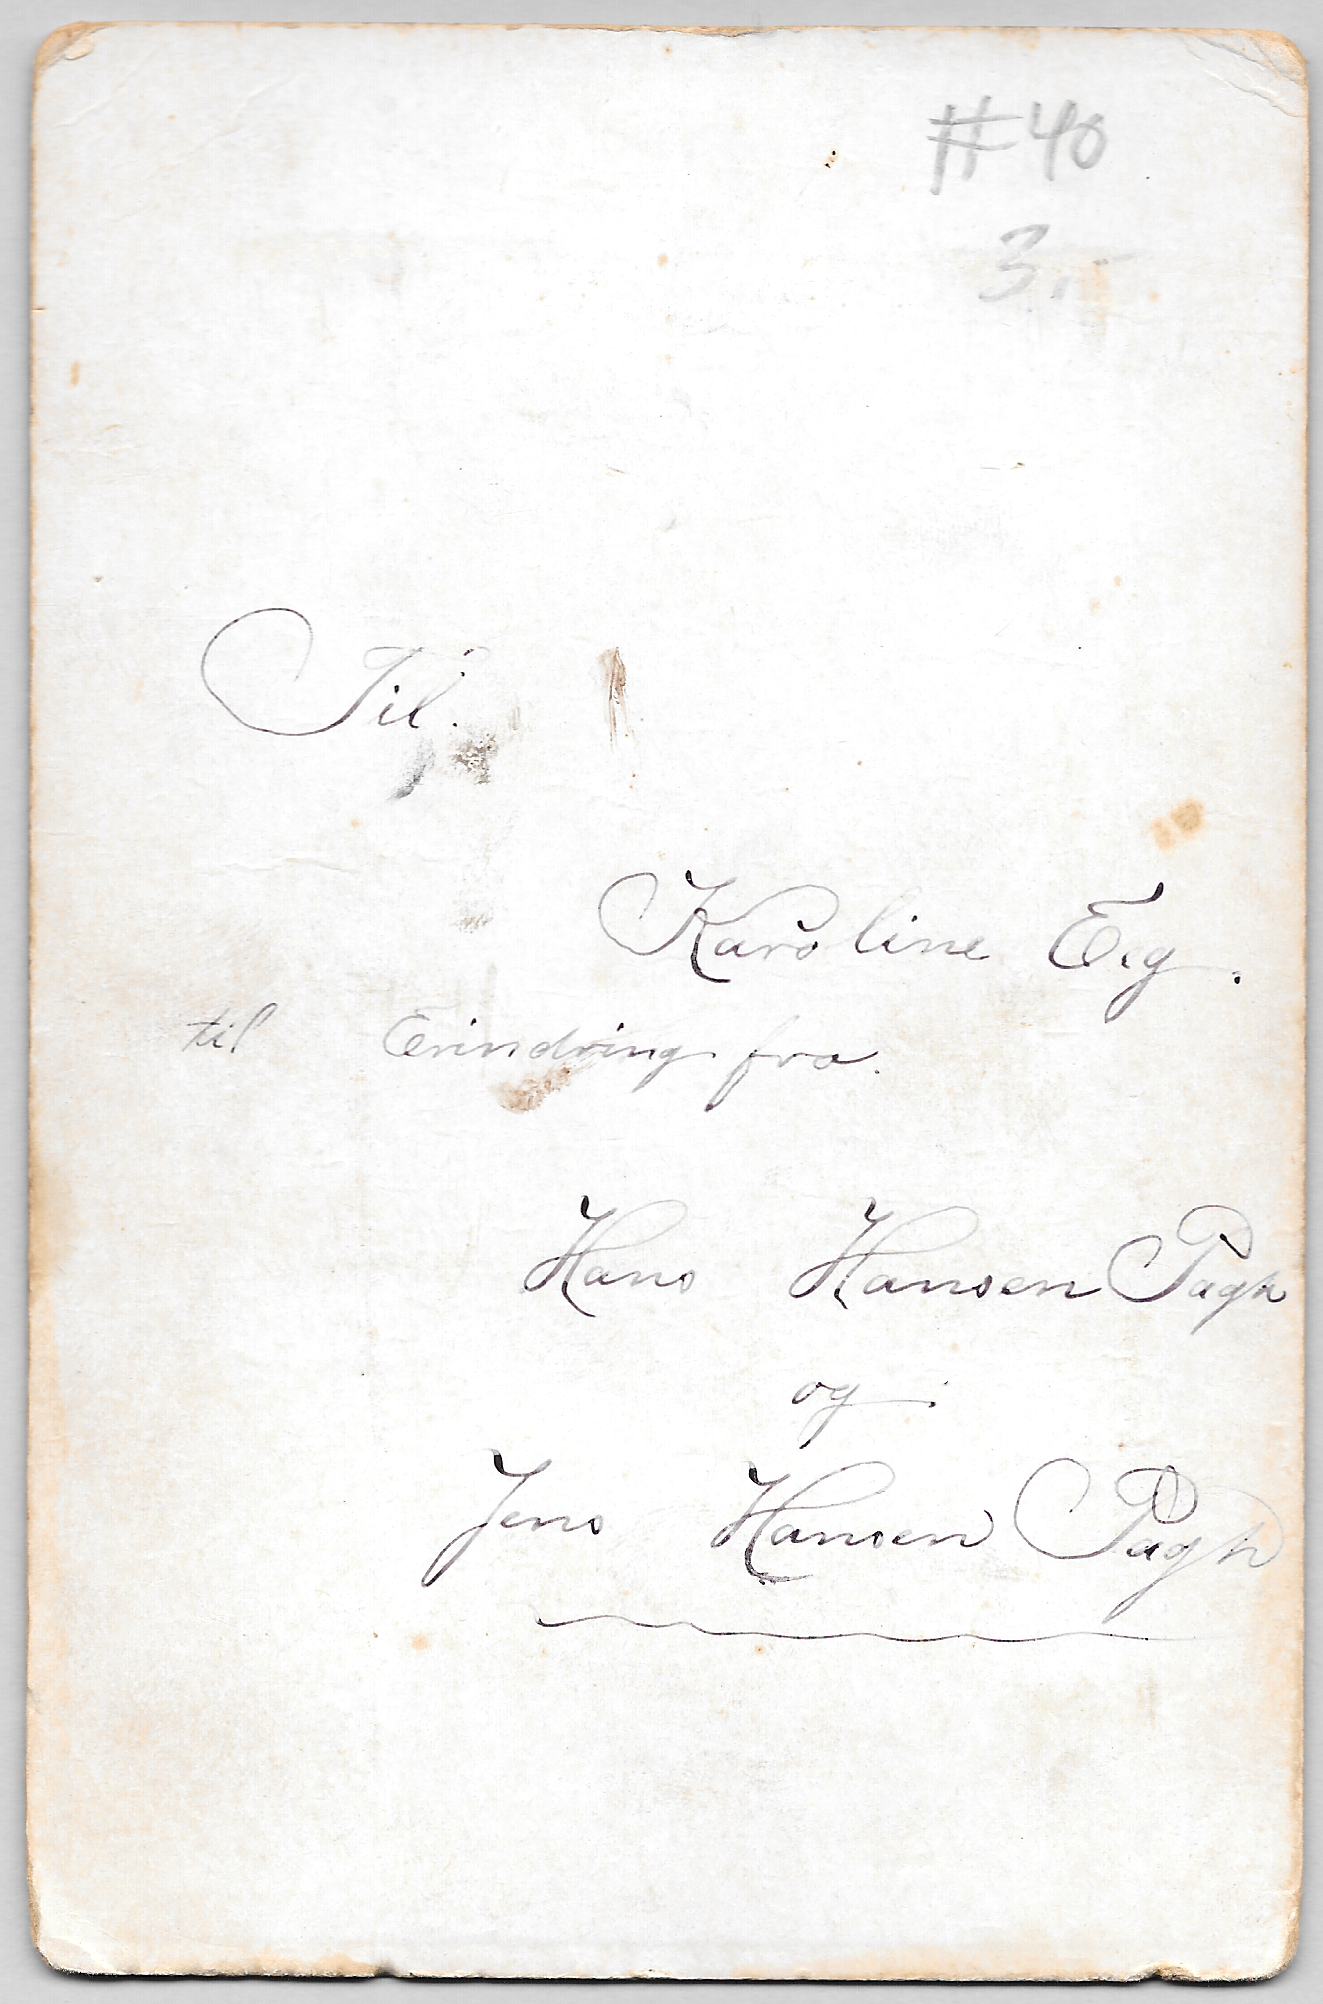 #40
3.-
Til.
Karoline E.g.
til Erindring fra.
Hans Hansen Pagh
og
Jens Hansen Pagh